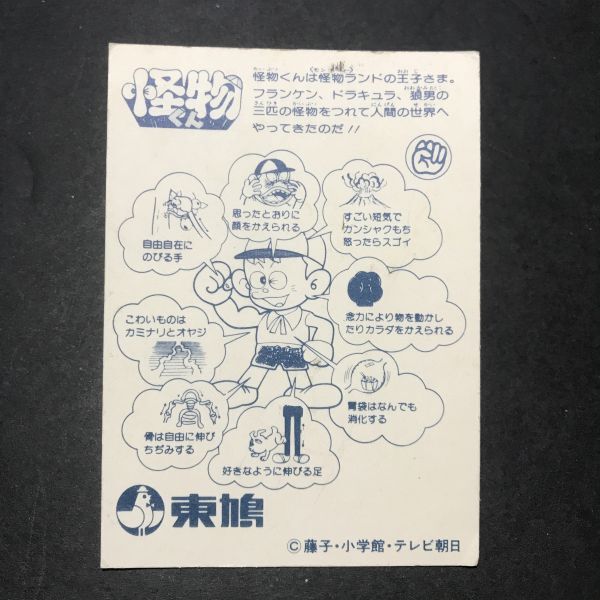 怪物くん
怪物くんは怪物ランドの王子さま。
フランケン、ドラキュラ、狼男の
三匹の怪物をつれて人間の世界へ
やってきたのだ!!
思ったとおりに
顔をかえられる
すごい短気で
カンシャクもち
怒ったらスゴイ
自由自在に
のびる手
念力により物を動かし
たりカラダをかえられる
こわいものは
カミナリとオヤジ
胃袋はなんでも
消化する
骨は自由に伸び
ちぢみする
好きなように伸びる足
東鳩
©藤子・小学館・テレビ朝日